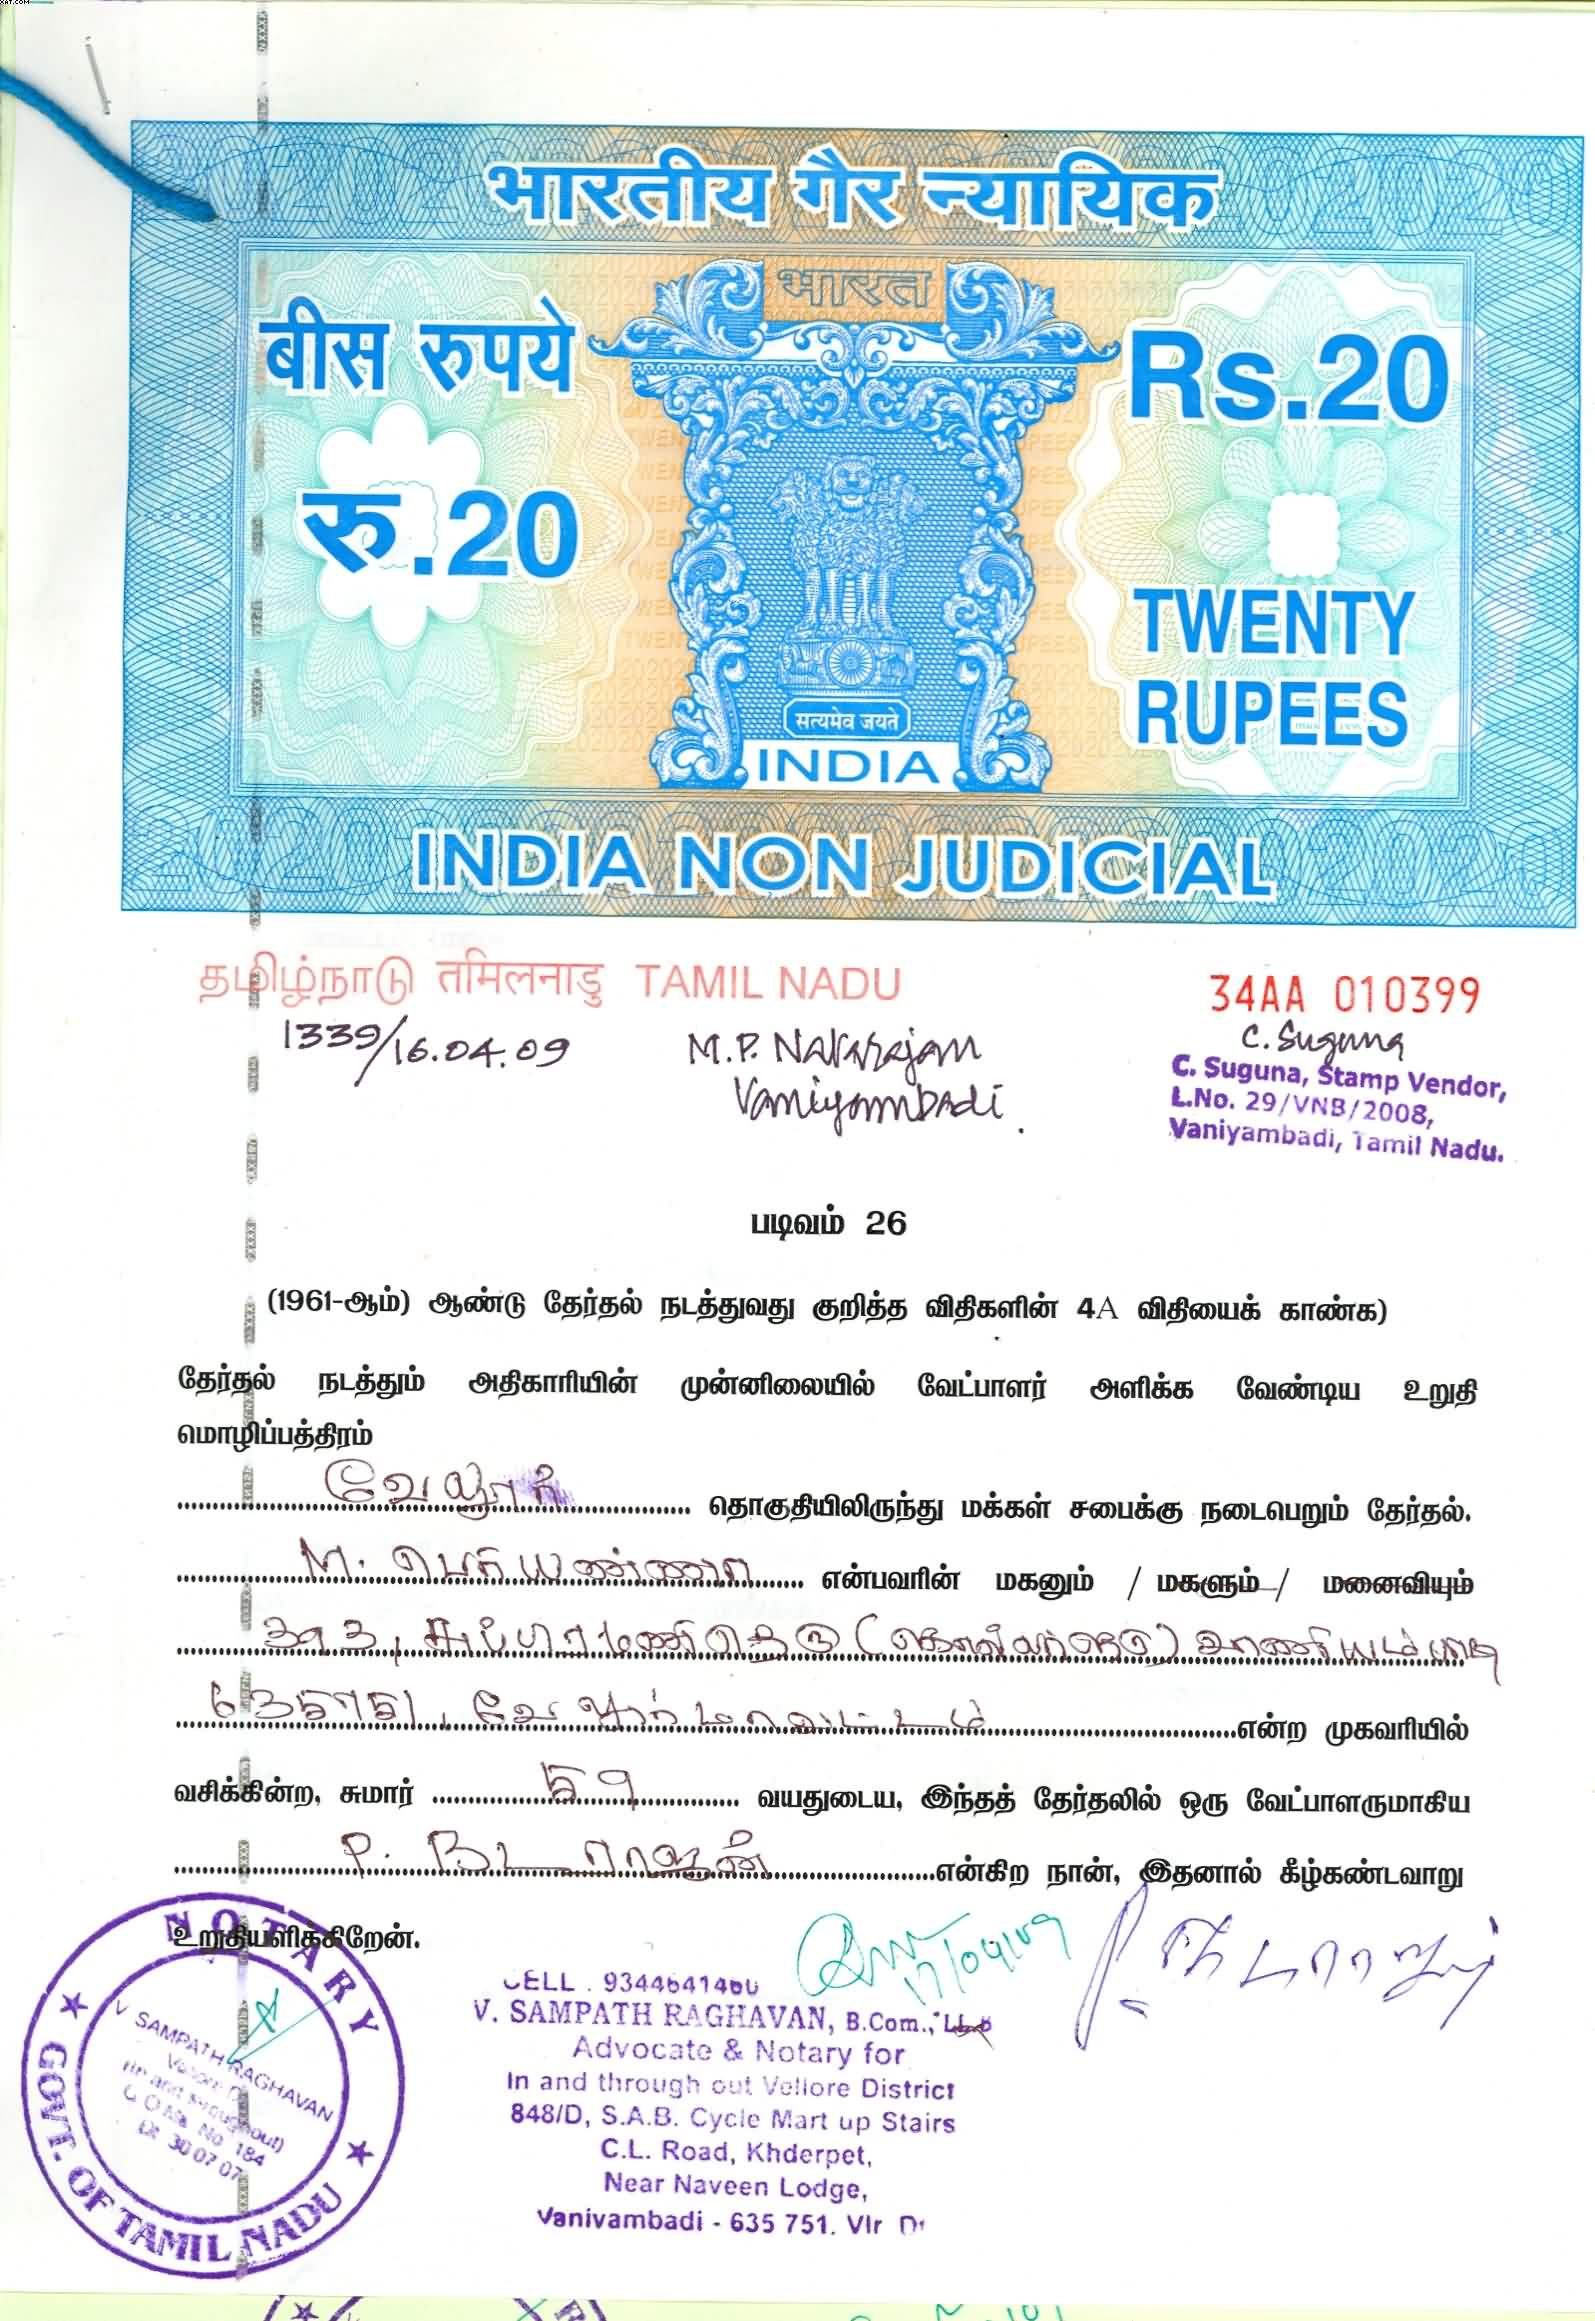 भारतीय गैर न्यायिक
भारत
बीस रुपये
Rs.20
रु.20
TWENTY
RUPEES
सत्यमेव जयते
INDIA
INDIA NON JUDICIAL
தமிழ்நாடு तमिलनाडु TAMIL NADU
34AA 010399
1339/16.04.09
M.P. Natarajan
Vaniyambadi.
C. Suguna
C. Suguna, Stamp Vendor,
L.No. 29/VNB/2008,
Vaniyambadi, Tamil Nadu.
படிவம் 26
(1961-ஆம்) ஆண்டு தேர்தல் நடத்துவது குறித்த விதிகளின் 4A விதியைக் காண்க)
தேர்தல் நடத்தும் அதிகாரியின் முன்னிலையில் வேட்பாளர் அளிக்க வேண்டிய உறுதி
மொழிப்பத்திரம்
வேலூர் தொகுதியிலிருந்து மக்கள் சபைக்கு நடைபெறும் தேர்தல்.
M. பெரியண்ணன் என்பவரின் மகனும் / மகளும் / மனைவியும்
வாணியம்பாடி
635751, வேலூர் மாவட்டம் என்ற முகவரியில்
வசிக்கின்ற, சுமார் 59 வயதுடைய, இந்தத் தேர்தலில் ஒரு வேட்பாளருமாகிய
P. நடராஜன் என்கிற நான், இதனால் கீழ்கண்டவாறு
உறுதியளிக்கிறேன்.
17/04/09
NOTARY
GOVT. OF TAMIL NADU
V. SAMPATH RAGHAVAN
G.O.Ms. No 184
Dt 30 07 07
CELL . 9344641460
V. SAMPATH RAGHAVAN, B.Com.,
Advocate & Notary for
In and through out Vellore District
848/D, S.A.B. Cycle Mart up Stairs
C.L. Road, Khderpet,
Near Naveen Lodge,
Vanivambadi - 635 751. Vlr Dt